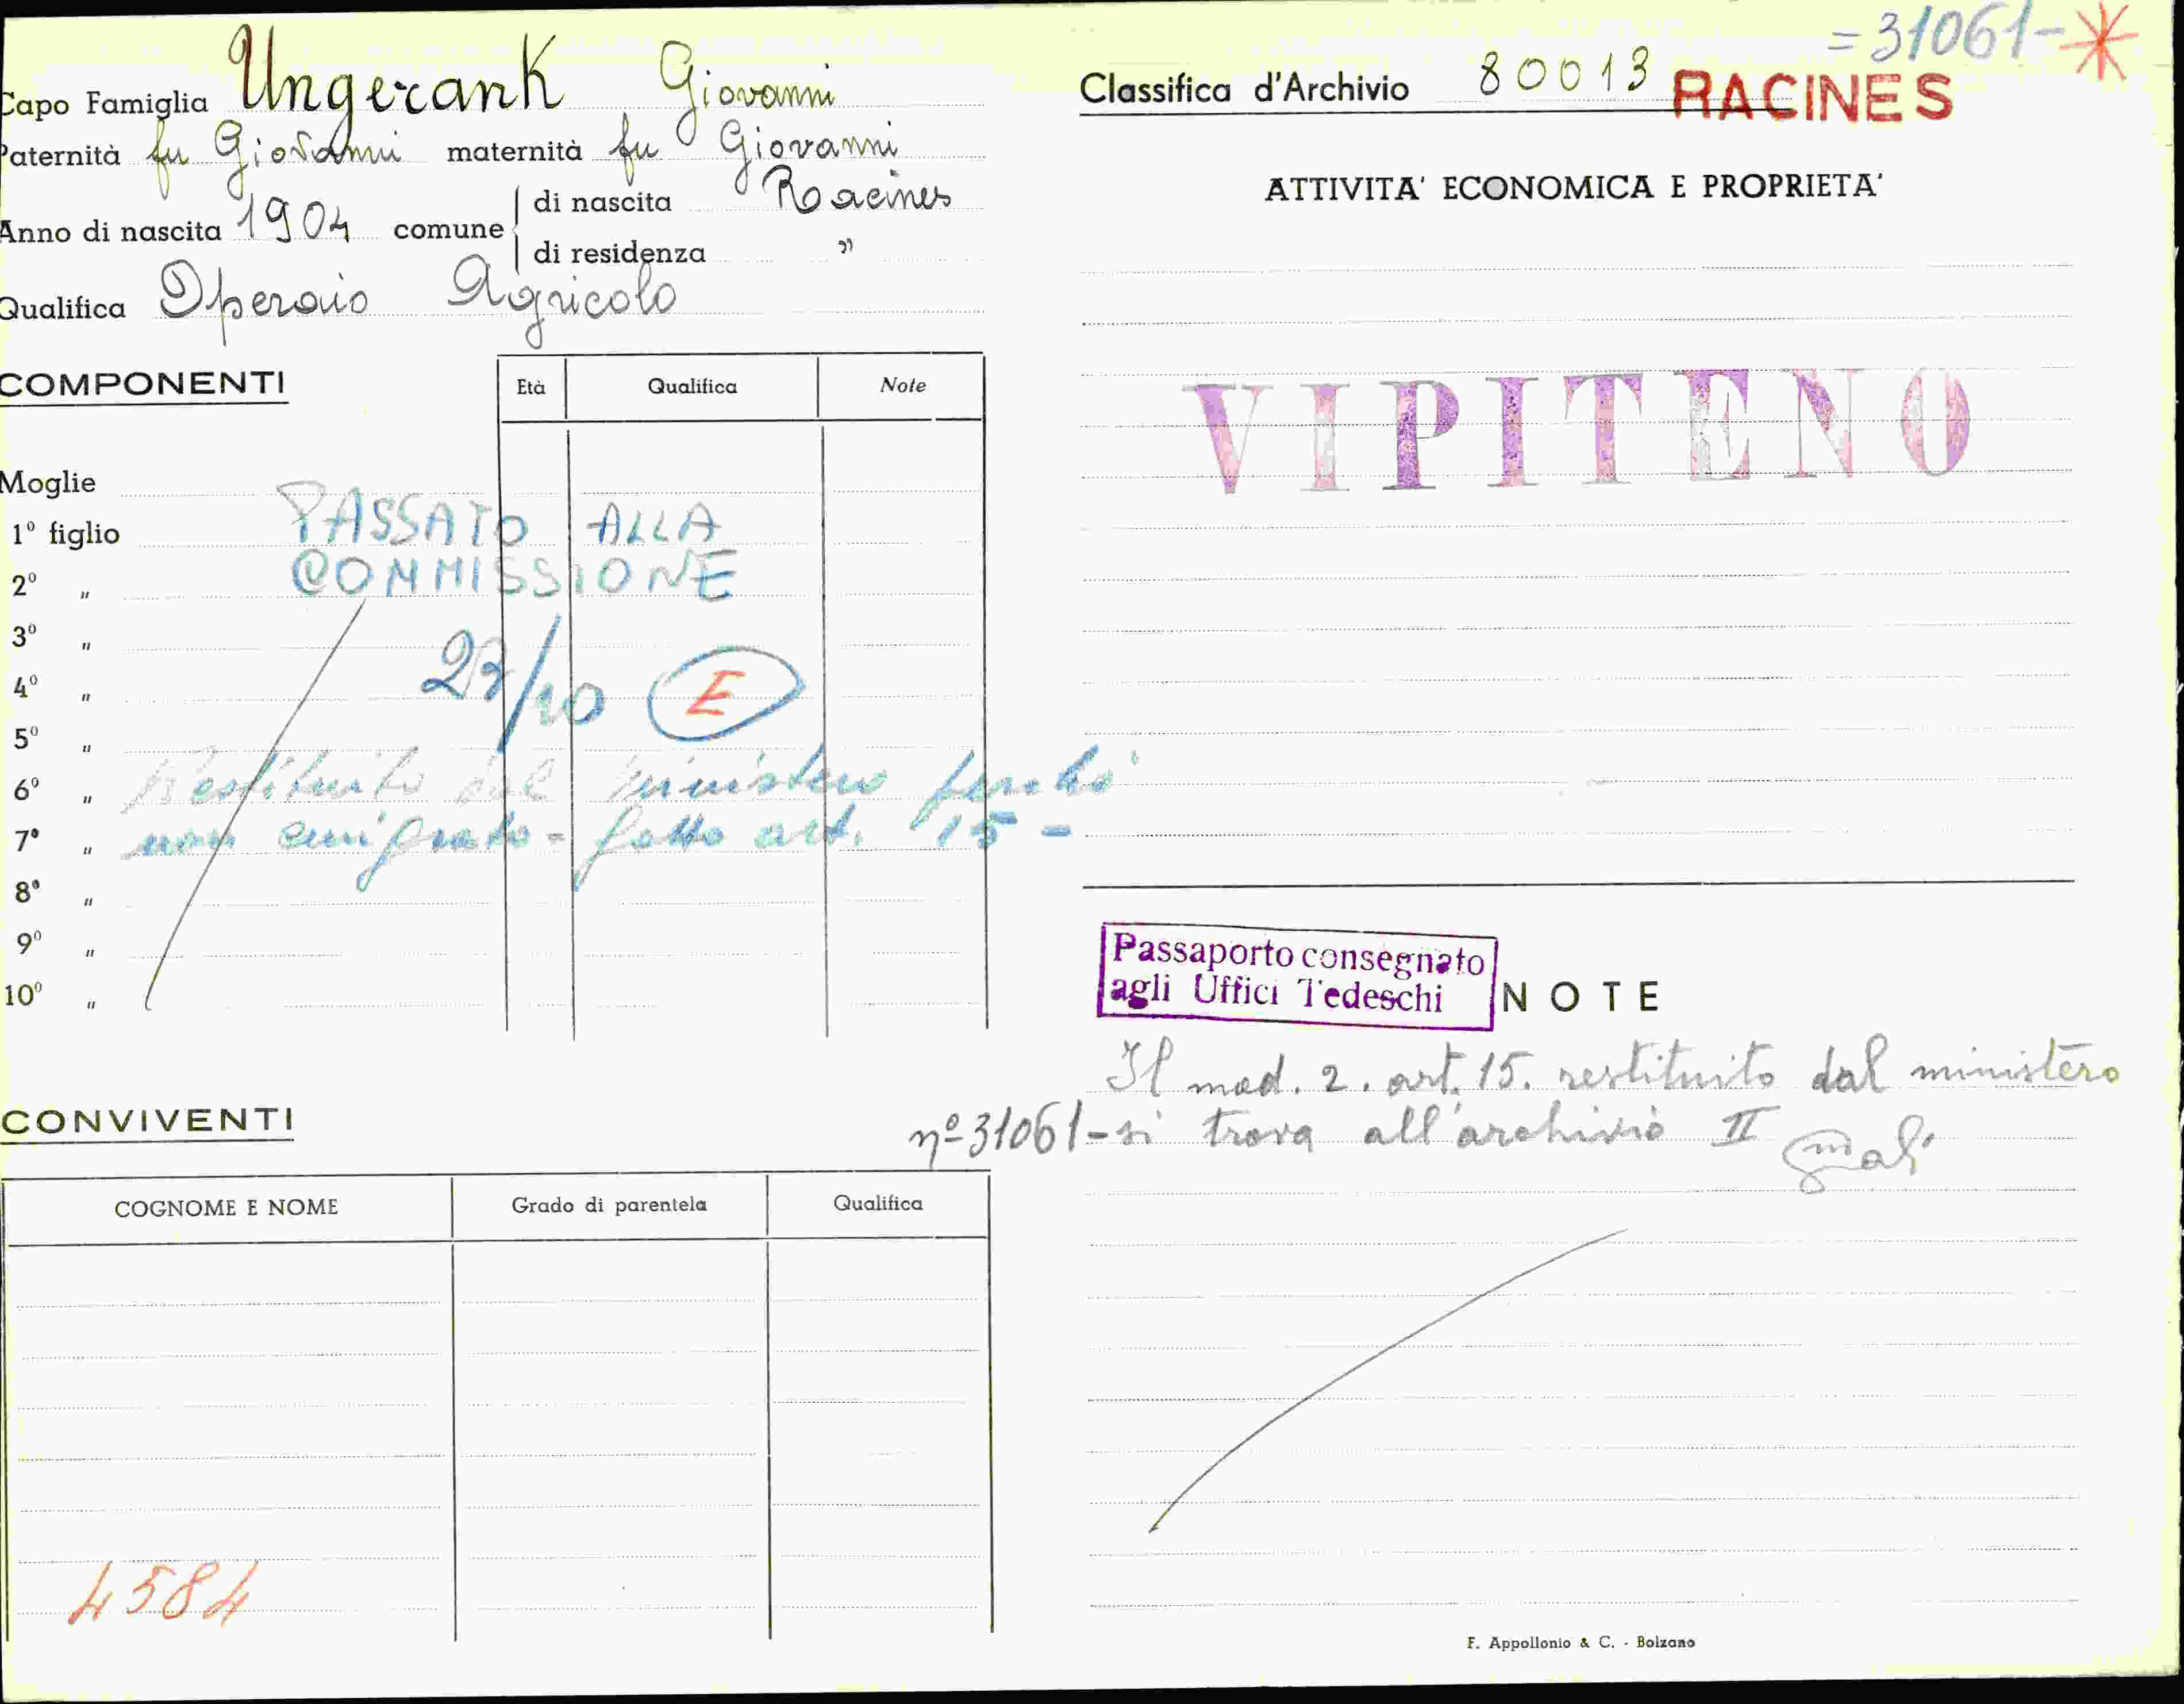 Capo Famiglia Ungerank Giovanni
Paternità fu Giovanni maternità fu Giovanni
Anno di nascita 1904 comune di nascita Racines
di residenza "
Qualifica Operaio Agricolo
COMPONENTI Età Qualifica Note
Moglie
1º figlio
2º "
3º "
4º "
5º "
6º "
7º "
8º "
9º "
10º "
PASSATO ALLA
COMMISSIONE
27/10 E
Restituito dal ministero perchè
non emigrato - fatto art. 15 -
CONVIVENTI
COGNOME E NOME Grado di parentela Qualifica
4584
= 31061 - *
Classifica d'Archivio 80013 RACINES
ATTIVITA' ECONOMICA E PROPRIETA'
VIPITENO
Passaporto consegnato
agli Uffici Tedeschi
NOTE
Il mod. 2. art. 15. restituito dal ministero
nº 31061 - si trova all'archivio II
F. Appollonio & C. - Bolzano